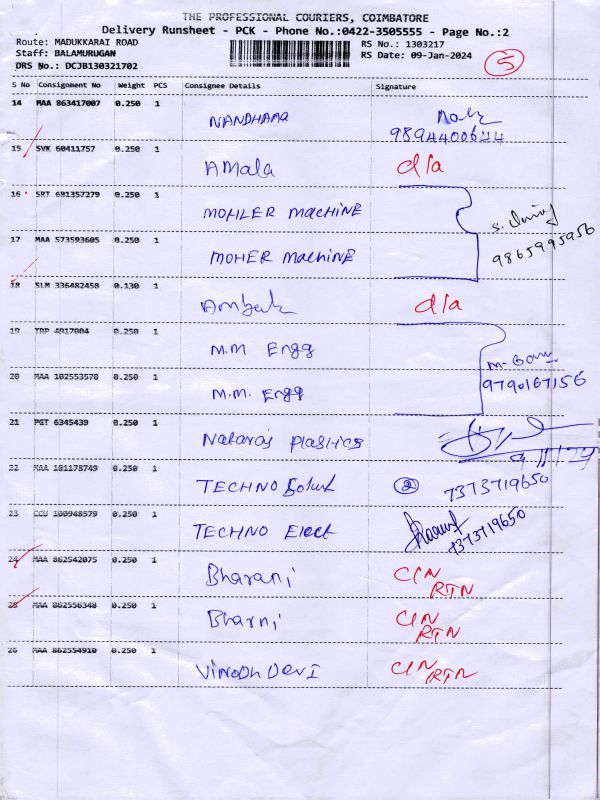 THE PROFESSIONAL COURIERS, COIMBATORE
Delivery Runsheet - PCK - Phone No.:0422-3505555 - Page No.:2
Route: MADUKKARAI ROAD RS No.: 1303217
Staff: BALAMURUGAN RS Date: 09-Jan-2024
DRS No.: DCJB130321702 5
S No Consignment No Weight PCS Consignee Details Signature
14 MAA 863417007 0.250 1 NANDHAMA
9894400644
15 SVK 60411757 0.250 1 Amala d/a
16 SRT 681357279 0.250 1 MOHLER MACHINE
9865995956
17 MAA 573593605 0.250 1 MOHER MACHINE
18 SLM 336482458 0.130 1 d/a
19 TRP 4917004 0.250 1 M.M ENGG
9790167156
20 MAA 102553578 0.250 1 M.M. ENGG
21 PGT 6345439 0.250 1 Nataraj Plastics
22 MAA 101178749 0.250 1 TECHNO 7373719650
23 CCU 100948579 0.250 1 TECHNO Elect
7373719650
24 MAA 862542075 0.250 1 Bharani CIN
RTN
25 MAA 862556348 0.250 1 Bharni CIN
RTN
26 MAA 862554910 0.250 1 VINODH DEVI CIN
RTN